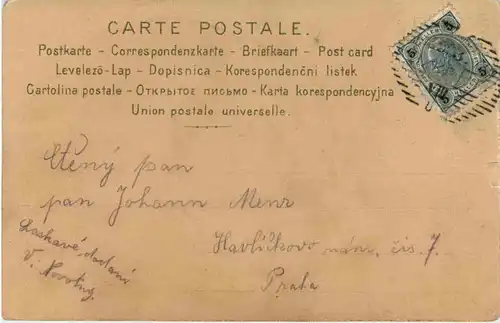 CARTE POSTALE.
Postkarte - Correspondenzkarte - Briefkaart - Post card
Levelező-Lap - Dopisnica - Korespondenční listek
Cartolina postale - Открытое письмо - Karta korespondencyjna
Union postale universelle.
5 5
Ctěný pan
pan Johann
Havlíčkovo nám. čís. 7.
Praha
Laskavé dodání